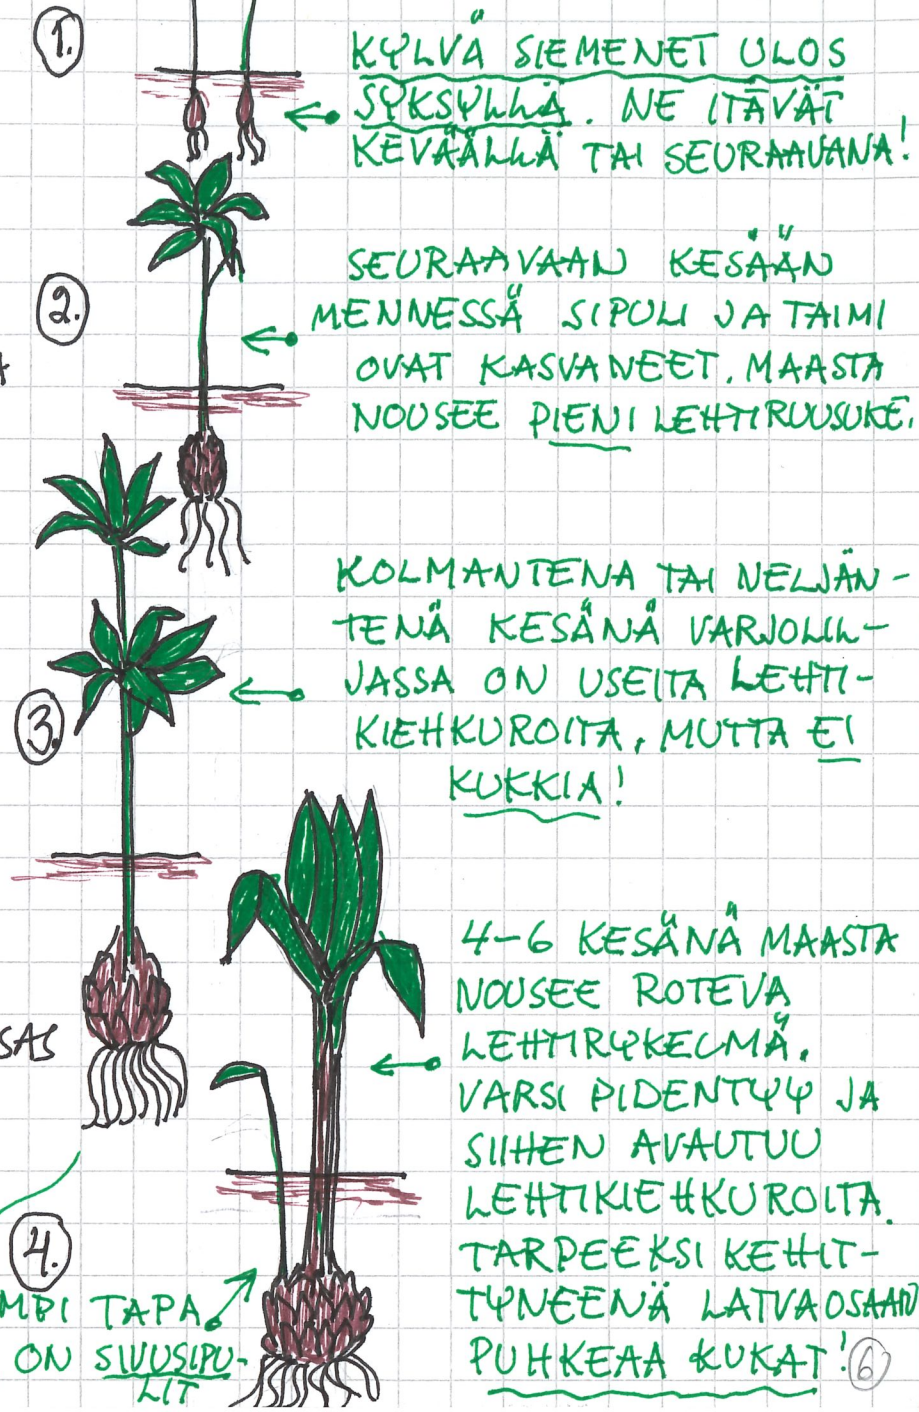 1.
KYLVÄ SIEMENET ULOS
SYKSYLLÄ. NE ITÄVÄT
KEVÄÄLLÄ TAI SEURAAVANA!
2.
SEURAAVAAN KESÄÄN
MENNESSÄ SIPULI JA TAIMI
OVAT KASVANEET. MAASTA
NOUSEE PIENI LEHTIRUUSUKE.
3.
KOLMANTENA TAI NELJÄN-
TENÄ KESÄNÄ VARJOLIL-
JASSA ON USEITA LEHTI-
KIEHKUROITA, MUTTA EI
KUKKIA!
SAS
4-6 KESÄNÄ MAASTA
NOUSEE ROTEVA
LEHTIRYKELMÄ.
VARSI PIDENTYY JA
SIIHEN AVAUTUU
LEHTIKIEHKUROITA.
TARPEEKSI KEHIT-
TYNEENÄ LATVAOSAAN
PUHKEAA KUKAT!
6
4.
MPI TAPA
ON SIVUSIPU-
LIT